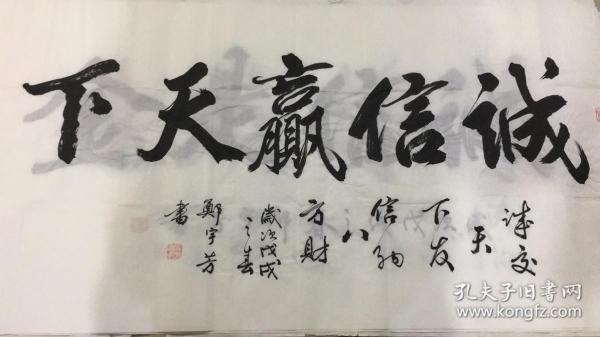 誠信贏天下
诚交
天
下友
信納
八
方財
歲次戊戌
之春
鄭宇芳
書
孔夫子旧书网
www.kongfz.com